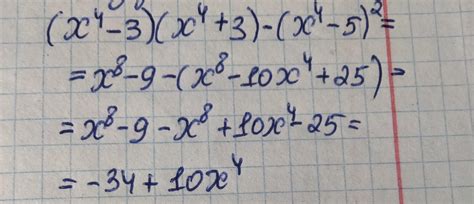 (x⁴-3)(x⁴+3)-(x⁴-5)²=
=x⁸-9-(x⁸-10x⁴+25)=
=x⁸-9-x⁸+10x⁴-25=
=-34+10x⁴